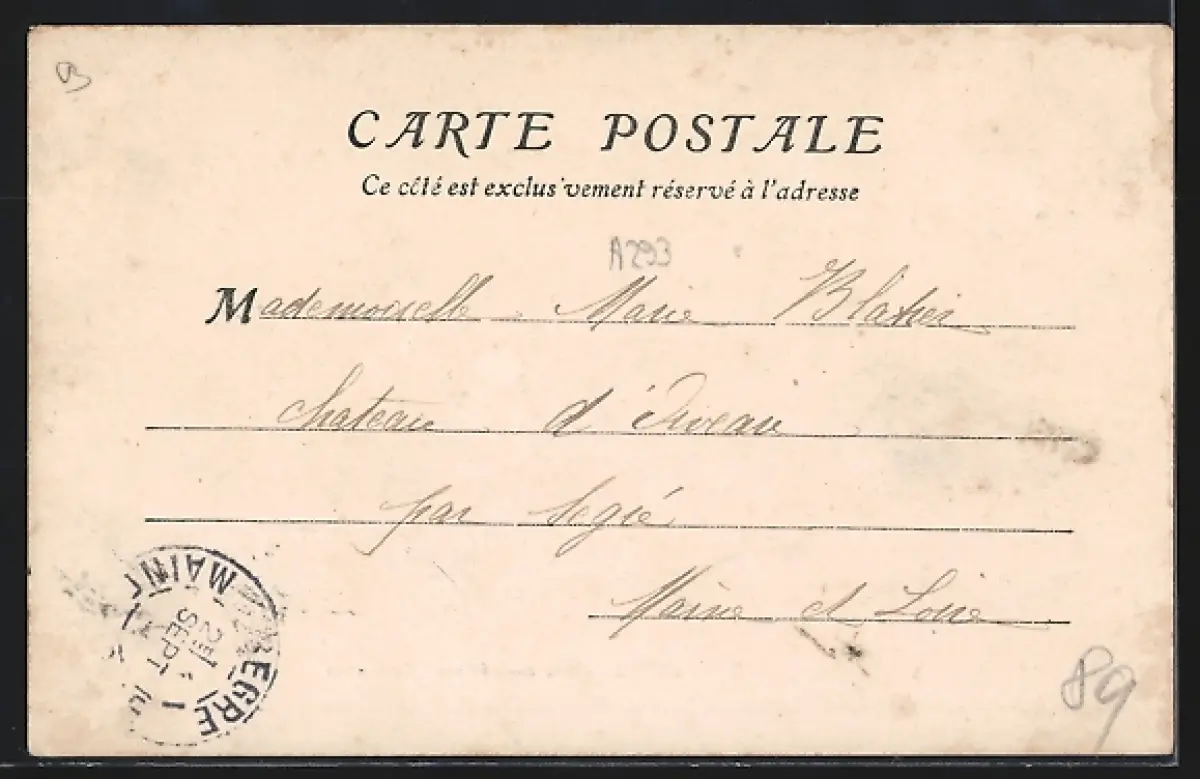 CARTE POSTALE
Ce côté est exclusivement réservé à l'adresse
A293
Mademoiselle Marie Blatier
chateau d'
par Segré
Maine et Loire
SEGRE
MAINE
SEPT
89